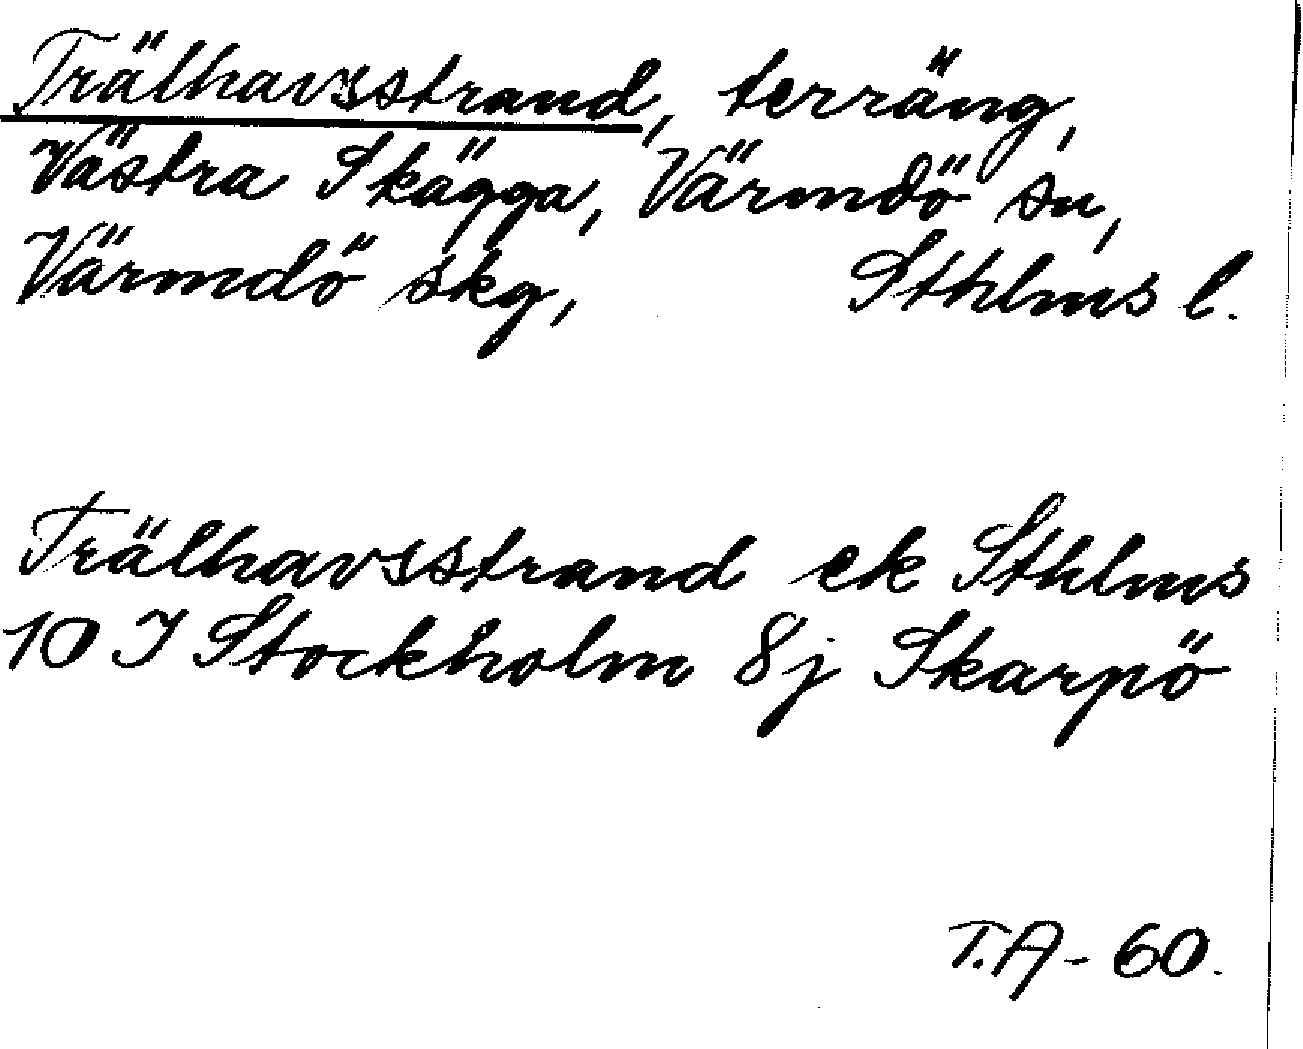 Trälhavsstrand, terräng,
Västra Skägga, Värmdö sn,
Värmdö skg, Sthlms l.
Trälhavsstrand ek Sthlms
10 I Stockholm 8j Skarpö
T.A - 60.